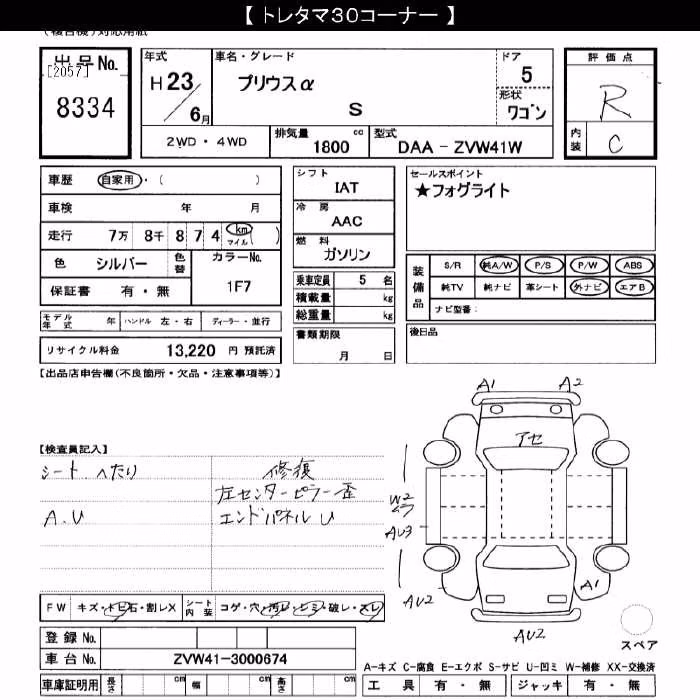 【 トレタマ30コーナー 】
(複合機)対応用紙
出品No.
[2057]
8334
年式
H 23
/ 6月
車名・グレード
プリウスα
S
ドア
5
形状
ワゴン
評価点
R
内装
C
2WD・4WD
排気量 1800 cc
型式 DAA - ZVW41W
車歴 自家用・( )
車検 年 月
走行 7万 8千 8 7 4 km マイル ( )
色 シルバー 色替 カラーNo. 1F7
保証書 有・無
モデル年式 年 ハンドル 左・右 ディーラー・並行
リサイクル料金 13,220 円 預託済
シフト
IAT
冷房
AAC
燃料
ガソリン
乗車定員 5 名
積載量 kg
総重量 kg
書類期限
月 日
セールスポイント
★フォグライト
装備品
S/R 純A/W P/S P/W ABS
純TV 純ナビ 革シート 外ナビ エアB
ナビ型番:
後日品
【出品店申告欄(不良箇所・欠品・注意事項等)】
【検査員記入】
シート へたり
A.U
修復
左センターピラー歪
エンドパネルU
A1 A2
アセ
W2
AU3
AU2
A1
AU2
スペア
FW キズ・トビ石・割レX シート内装 コゲ・穴・汚レ・シミ・破レ・スレ
登録No.
車台No. ZVW41-3000674
車庫証明用 長さ cm 幅 cm 高さ cm
A-キズ C-腐食 E-エクボ S-サビ U-凹ミ W-補修 XX-交換済
工具 有・無 ジャッキ 有・無